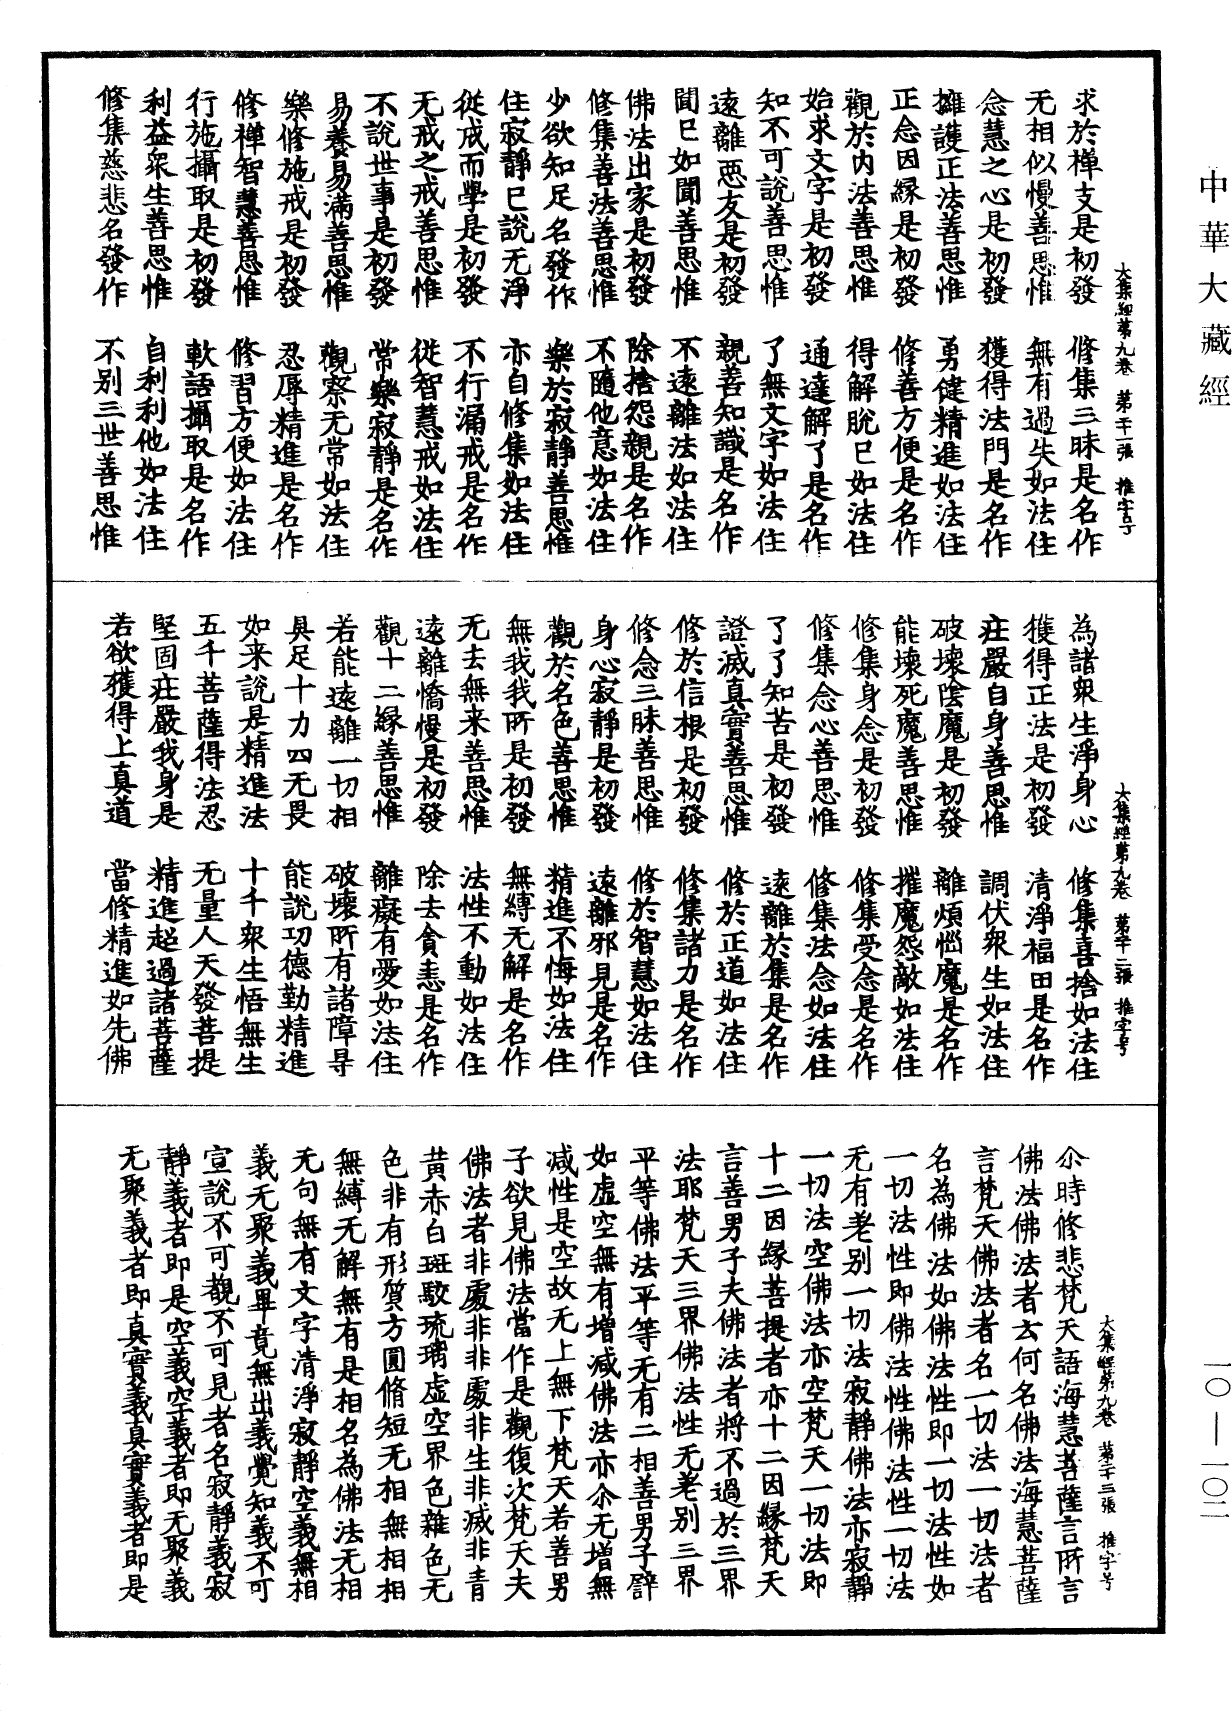 中華大藏經
大集經第九卷 第二十一張 推字号
求於禅支是初發 修集三昧是名作
无相似慢善思惟 無有過失如法住
念慧之心是初發 獲得法門是名作
擁護正法善思惟 勇健精進如法住
正念因緣是初發 修善方便是名作
觀於内法善思惟 得解脫已如法住
始求文字是初發 通達解了是名作
知不可說善思惟 了無文字如法住
遠離惡友是初發 親善知識是名作
聞已如聞善思惟 不遠離法如法住
佛法出家是初發 除捨怨親是名作
修集善法善思惟 不隨他意如法住
少欲知足名發作 樂於寂靜善思惟
住寂靜已說无淨 亦自修集如法住
從戒而學是初發 不行漏戒是名作
无戒之戒善思惟 從智慧戒如法住
不說世事是初發 常樂寂靜是名作
易養易滿善思惟 觀察无常如法住
樂修施戒是初發 忍辱精進是名作
修禅智慧善思惟 修習方便如法住
行施攝取是初發 軟語攝取是名作
利益眾生善思惟 自利利他如法住
修集慈悲名發作 不别三世善思惟
大集經第九卷 第二十二張 推字号
為諸眾生淨身心 修集喜捨如法住
獲得正法是初發 清淨福田是名作
庄嚴自身善思惟 調伏眾生如法住
破壞陰魔是初發 離煩惱魔是名作
能壞死魔善思惟 摧魔怨敵如法住
修集身念是初發 修集受念是名作
修集念心善思惟 修集法念如法住
了了知苦是初發 遠離於集是名作
證滅真實善思惟 修於正道如法住
修於信根是初發 修集諸力是名作
修念三昧善思惟 修於智慧如法住
身心寂靜是初發 遠離邪見是名作
觀於名色善思惟 精進不悔如法住
無我我所是初發 無縛无解是名作
无去無来善思惟 法性不動如法住
遠離憍慢是初發 除去貪恚是名作
觀十二緣善思惟 離癡有愛如法住
若能遠離一切相 破壞所有諸障㝵
具足十力四无畏 能說功德勤精進
如来說是精進法 十千眾生悟無生
五千菩薩得法忍 无量人天發菩提
堅固庄嚴我身是 精進超過諸菩薩
若欲獲得上真道 當修精進如先佛
大集經第九卷 第二十三張 推字号
尒時修悲梵天語海慧菩薩言所言
佛法佛法者云何名佛法海慧菩薩
言梵天佛法者名一切法一切法者
名為佛法如佛法性即一切法性如
一切法性即佛法性佛法性一切法
无有差别一切法寂靜佛法亦寂靜
一切法空佛法亦空梵天一切法即
十二因緣菩提者亦十二因緣梵天
言善男子夫佛法者將不過於三界
法耶梵天三界佛法性无差别三界
平等佛法平等无有二相善男子譬
如虚空無有增减佛法亦尒无增無
减性是空故无上無下梵天若善男
子欲見佛法當作是觀復次梵天夫
佛法者非處非非處非生非滅非青
黄赤白斑駮琉璃虚空界色雜色无
色非有形質方圓脩短无相無相相
無縛无解無有是相名為佛法无相
无句無有文字清淨寂靜空義無相
義无聚義畢竟無出義覺知義不可
宣說不可覩不可見者名寂靜義寂
靜義者即是空義空義者即无聚義
无聚義者即真實義真實義者即是
一〇—一〇二